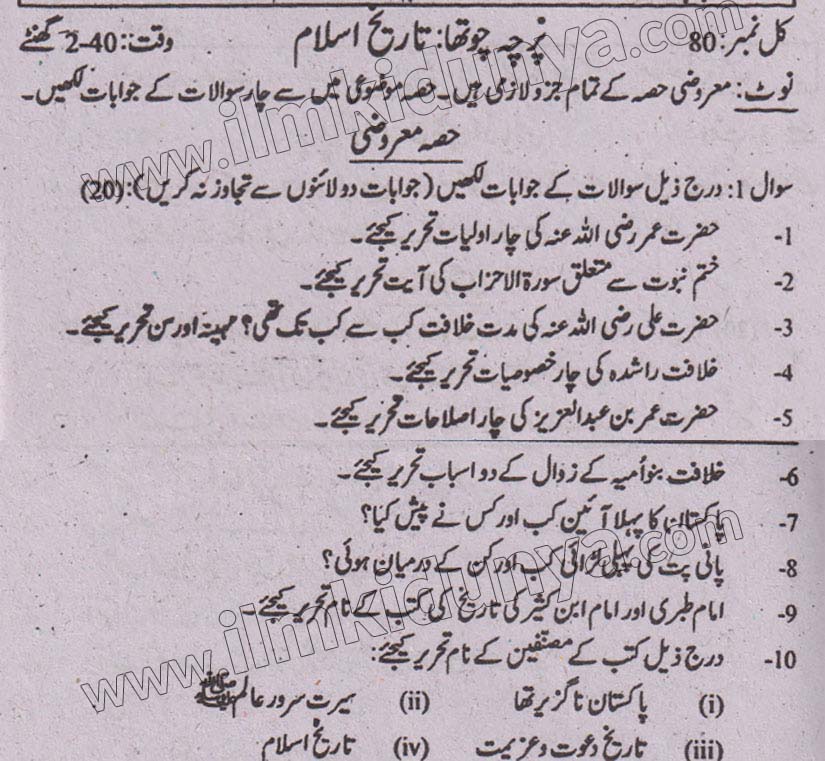 کل نمبر: 80 پرچہ چوتھا: تاریخ اسلام وقت: 40-2 گھنٹے
نوٹ: معروضی حصہ کے تمام جزو لازمی ہیں۔ حصہ موضوعی میں سے چار سوالات کے جوابات لکھیں۔
حصہ معروضی
سوال 1: درج ذیل سوالات کے جوابات لکھیں (جوابات دو لائنوں سے تجاوز نہ کریں): (20)
1- حضرت عمر رضی اللہ عنہ کی چار اولیات تحریر کیجئے۔
2- ختم نبوت سے متعلق سورۃ الاحزاب کی آیت تحریر کیجئے۔
3- حضرت علی رضی اللہ عنہ کی مدت خلافت کب سے کب تک تھی؟ مہینہ اور سن تحریر کیجئے۔
4- خلافت راشدہ کی چار خصوصیات تحریر کیجئے۔
5- حضرت عمر بن عبدالعزیز کی چار اصلاحات تحریر کیجئے۔
6- خلافت بنو اُمیہ کے زوال کے دو اسباب تحریر کیجئے۔
7- پاکستان کا پہلا آئین کب اور کس نے پیش کیا؟
8- پانی پت کی پہلی لڑائی کب اور کن کے درمیان ہوئی؟
9- امام طبری اور امام ابن کثیر کی تاریخ کی کتب کے نام تحریر کیجئے۔
10- درج ذیل کتب کے مصنفین کے نام تحریر کیجئے:
(i) پاکستان ناگزیر تھا (ii) سیرت سرور عالم ﷺ
(iii) تاریخ دعوت و عزیمت (iv) تاریخ اسلام
www.ilmkidunya.com
www.ilmkidunya.com